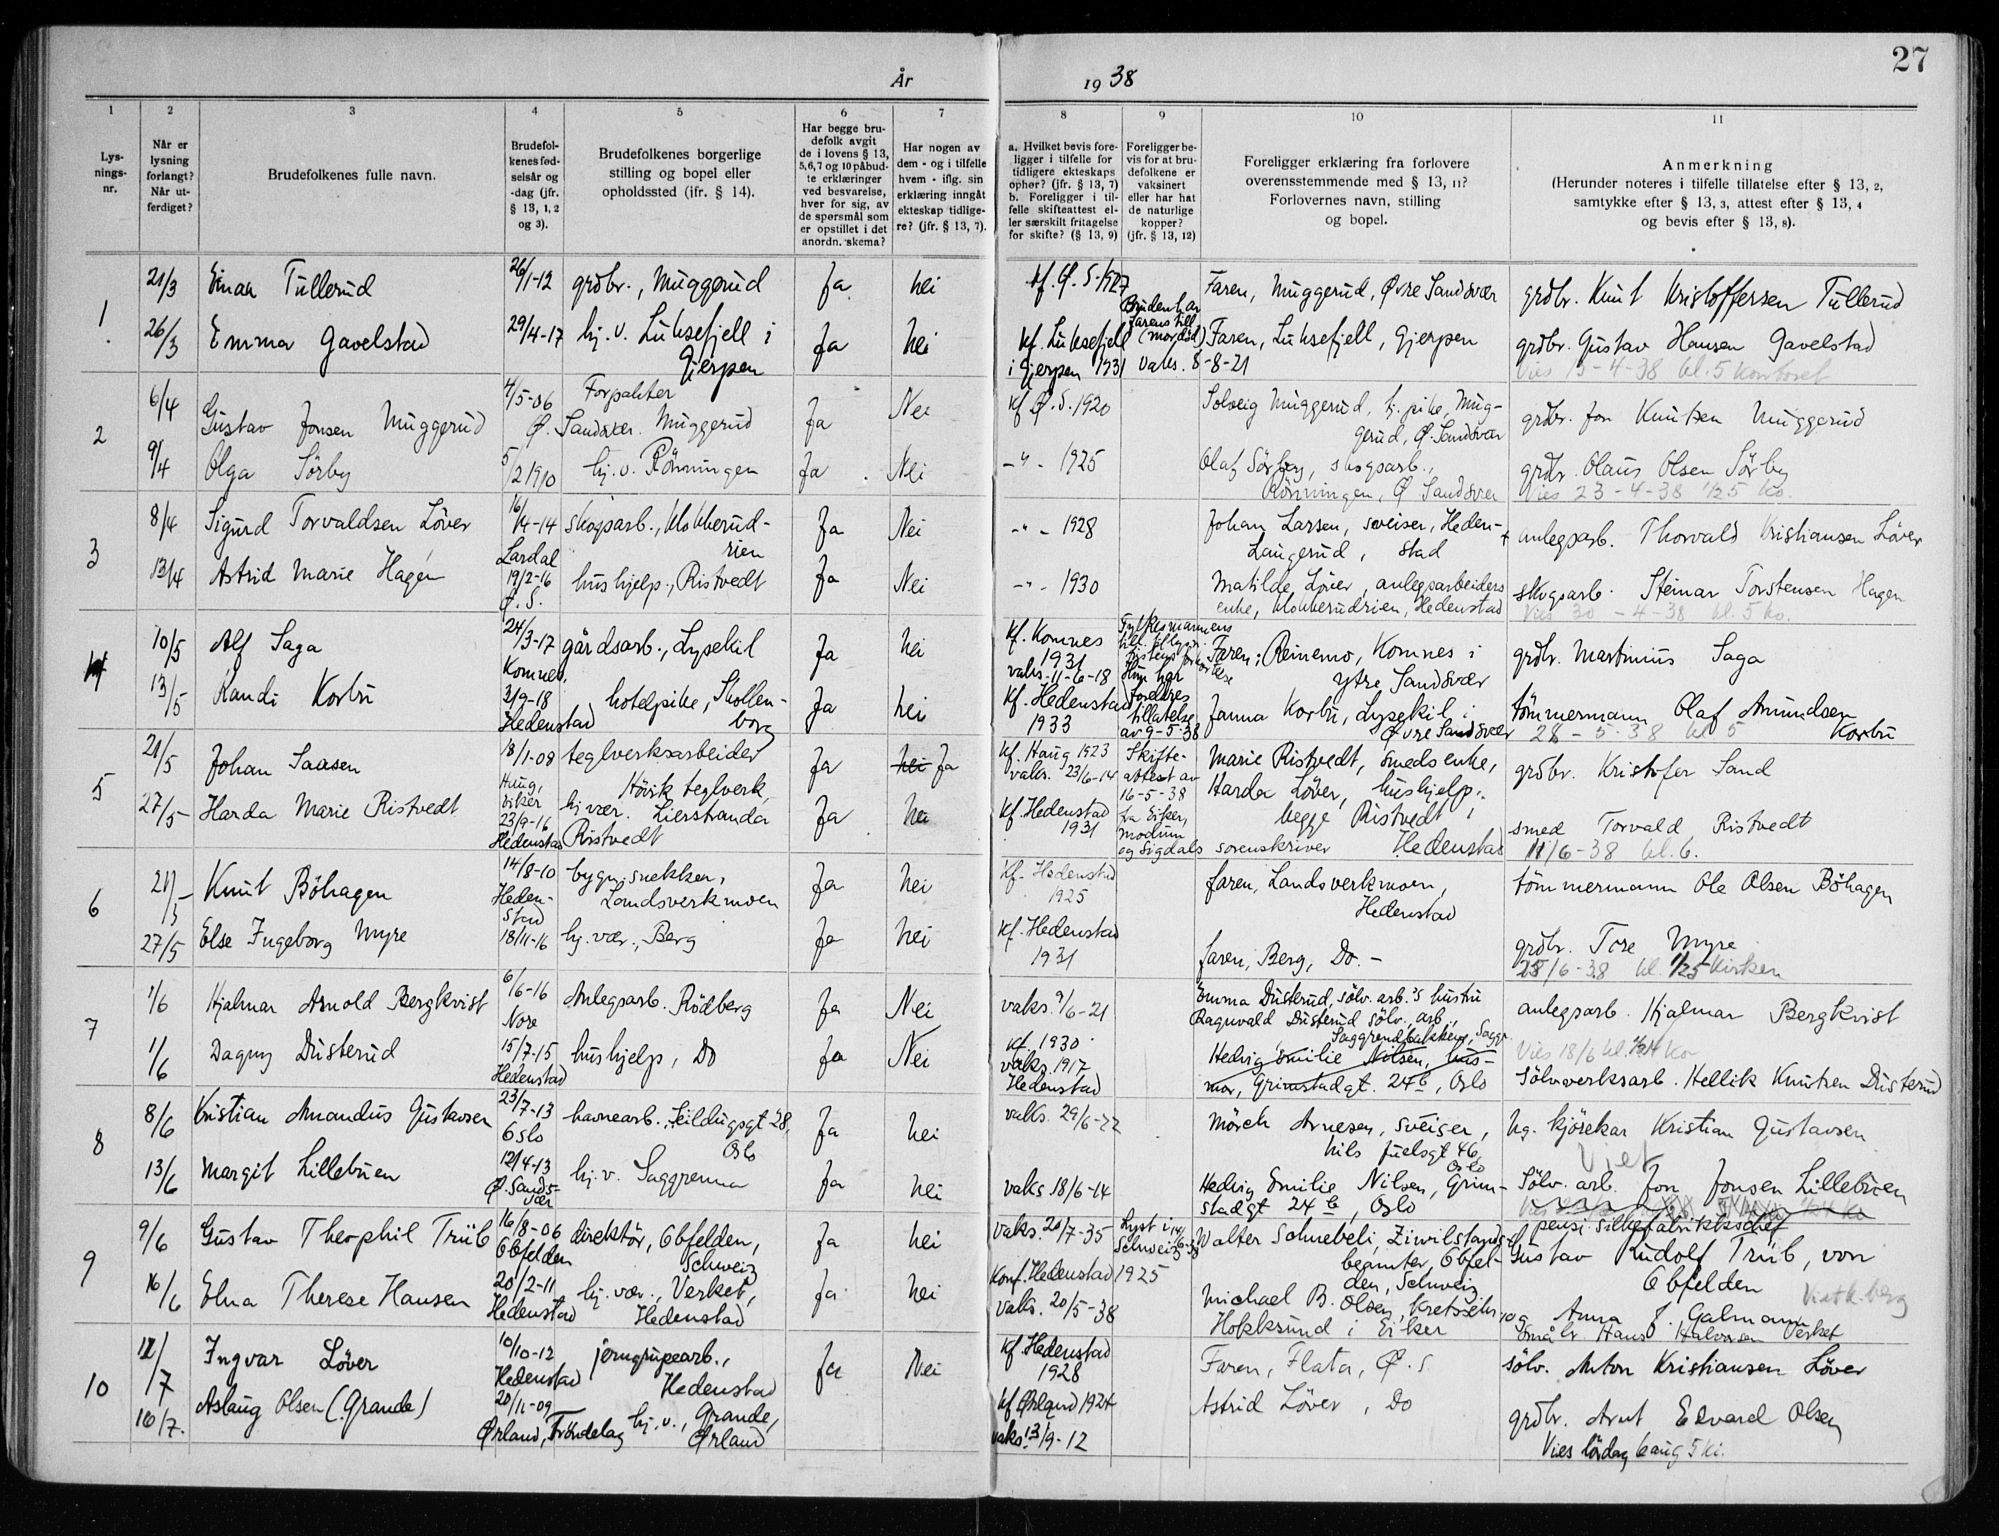 27
År 1938
1 2 3 4 5 6 7 8 9 10 11
Lysningsnr.
Når er lysning forlangt? Når utferdiget?
Brudefolkenes fulle navn.
Brudefolkenes fødselsår og -dag (jfr. § 13, 1, 2 og 3).
Brudefolkenes borgerlige stilling og bopel eller opholdssted (jfr. § 14).
Har begge brudefolk avgit de i lovens § 13, 5,6,7 og 10 påbudte erklæringer ved besvarelse, hver for sig, av de spørsmål som er opstillet i det anordn. skema?
Har nogen av dem - og i tilfelle hvem - iflg. sin erklæring inngåt ekteskap tidligere? (jfr. § 13, 7).
a. Hvilket bevis foreligger i tilfelle for tidligere ekteskaps ophør? (jfr. § 13, 7) b. Foreligger i tilfelle skifteattest eller særskilt fritagelse for skifte? (§ 13, 9)
Foreligger bevis for at brudefolkene er vaksinert eller har hat de naturlige kopper? (jfr. § 13, 12)
Foreligger erklæring fra forlovere overensstemmende med § 13, 11? Forlovernes navn, stilling og bopel.
Anmerkning (Herunder noteres i tilfelle tillatelse efter § 13, 2, samtykke efter § 13, 3, attest efter § 13, 4 og bevis efter § 13, 8).
1 21/3 Einar Tullerud 26/1-12 grdbr., Muggerud Ja nei kf. Ø. S. 1927 Faren, Muggerud, Øvre Sandsvær grdbr. Knut Kristoffersen Tullerud
Bruden har Farens till. (mor død)
26/3 Emma Gavelstad 29/4-17 hj. v. Luksefjell i Gjerpen Ja nei kf. Luksefjell i Gjerpen 1931 vaks. 8-8-21 Faren, Luksefjell, Gjerpen grdbr. Gustav Hansen Gavelstad
Vies 15-4-38 kl. 5 kontoret
2 6/4 Gustav Jonsen Muggerud 4/5-06 Forpakter Ø. Sandsvær. Muggerud Ja Nei kf Ø. S. 1920 Solveig Muggerud, hj. pike, Muggerud, Ø. Sandsvær grdbr. Jon Knutsen Muggerud
9/4 Olga Sörby 5/2 1910 hj. v. Rönningen Ja Nei -"- 1925 Olaf Sörby, skogsarb., Rönningen, Ø Sandsvær grdbr. Olaus Olsen Sörby
Vies 23-4-38 1/2 5 ko.
3 8/4 Sigurd Torvaldsen Löver 16/4-14 Lardal skogsarb., Klokkerudrien Ja Nei -"- 1928 Johan Larsen, sveiser, Hedenstad Laugerud, anlegsarb. Thorvald Kristiansen Löver
13/4 Astrid Marie Hagen 19/2-16 Ø. S. hushjelp, Ristvedt Ja Nei -"- 1930 Matilde Löver, anlegsarbeiders enke, Klokkerudrien, Hedenstad skogsarb. Steinar Torstensen Hagen
Vies 30-4-38 kl. 5 ko.
4 10/5 Alf Saga 24/3-17 Komnes. gårdsarb., Lysekil Ja nei kf. Komnes 1931 vaks. 11-6-18 Fylkesmannens Faren, Reinemo, Komnes i ytre Sandsvær grdbr. Martinius Saga
13/5 Randi Korbu 3/9-18 Hedenstad hotelpike, Skollenborg Ja nei kf. Hedenstad 1933 Hun har Foreldres tillatelse av 9-5-38 Janna Korbu, Lysekil i Øvre Sandsvær tömmermann Olaf Amundsen Korbu
28-5-38 kl 5
5 21/5 Johan Saasen 18/1-08 Haug, Eiker teglverksarbeider Hövik teglverk, Lierstranda Ja nei Ja kf. Haug 1923 vaks. 23/6-14 Skifteattest av 16-5-38 fra Eiker, Modum og Sigdals sorenskriver Marie Ristvedt, smeds enke, grdbr. Kristofer Sand
27/5 Harda Marie Ristvedt 23/9-16 Hedenstad hj. vær. Ristvedt Ja nei kf. Hedenstad 1931 Harda Löver, hushjelp, begge Ristvedt i Hedenstad smed Torvald Ristvedt
11/6-38 kl. 6.
6 21/5 Knut Böhagen 14/8-10 Hedenstad bygn. snekker, Landsverkmoen Ja nei kf. Hedenstad 1925 Faren, Landsverkmoen, Hedenstad tömmermann Ole Olsen Böhagen
27/5 Else Ingeborg Myre 18/11-16 hj. vær., Berg Ja nei kf. Hedenstad 1931 Faren, Berg, Do. - grdbr. Tore Myre
25/6-38 kl. 1/2 5 Kirken
7 1/6 Hjalmar Arnold Bergkvist 6/6-16 Nore Anlegsarb. Rödberg Ja Nei vaks. 9/6-21 Emma Dusterud, sölv. arb.'s hustru Ragnvald Dusterud sölv. arb., Saggrendbakken, Saggr. anlegsarb. Hjalmar Bergkvist
Vies 18/6 kl. 1/2 4 Ko
1/6 Dagny Dusterud 15/7-15 Hedenstad hushjelp, Do Ja Nei kf. 1930 vaks. 1917 Hedenstad Hedvig Emilie Nilsen, husmor, Grimstadgt. 24b, Oslo Sölvverksarb. Hellik Knutsen Dusterud
8 8/6 Kristian Amandus Gustavsen 23/7-13 Oslo havnearb., Seildugsgt 28, Oslo Ja nei vaks. 29/6-22 Mörch Arnesen, sveiser, Nils Juelsgt 46, Oslo hg. kjörekar Kristian Gustavsen
Viet
13/6 Margit Lillebuen 12/4-13 Ø. Sandsvær hj. v. Saggrenna Ja nei vaks 18/6-14 Hedvig Emilie Nilsen, Grimstadgt 24b, Oslo Sölv. arb. Jon Jonsen Lillebuen
9 9/6 Gustav Theophil Trüb 16/8-06 Obfelden direktör, Obfelden, Schweiz Ja nei vaks. 20/7-35 Lyst i Schweiz 14/6-38 Walter Schnebeli, Zivilstandsbeamter, Obfelden, Schweiz pensj. silkefabrikksjef Gustav Rudolf Trüb, von Obfelden
16/6 Elna Therese Hansen 20/2-11 Hedenstad hj. vær., Verket, Hedenstad Ja nei Konf. Hedenstad 1925 vaks. 20/5-38 Michael B. Olsen, kretssekr. Hokksund i Eiker og Anna J. Galmann
Småbr. Hans Halvorsen Verket
Viet k.berg
10 11/7 Ingvar Löver 10/10-12 Hedenstad jerngrupearb., Hedenstad Ja Nei kf Hedenstad 1928 Faren, Flata, Ø. S. sölv. Anton Kristiansen Löver
10/7. Aslaug Olsen (Grande) 20/11-09 Ørland, Tröndelag hj. v., Grande, Ørland kf Ørland 1924 vaks. 13/9-12 Astrid Löver, Do grdbr. Arnt Edvard Olsen
Vies lördag 6 aug 5 ki.